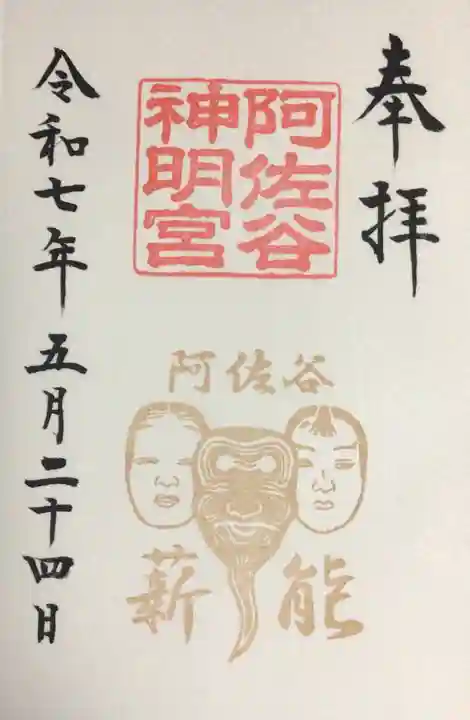 奉拝
阿佐谷
神明宮
阿佐谷
薪能
令和七年五月二十四日